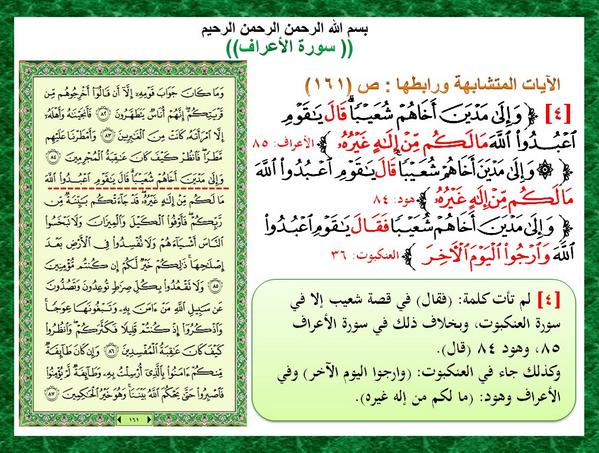 بسم الله الرحمن الرحمن الرحيم
(( سورة الأعراف))
الآيات المتشابهة ورابطها : ص (١٦١)
[٤] ﴿ وَإِلَىٰ مَدْيَنَ أَخَاهُمْ شُعَيْبًا ۗ قَالَ يَـٰقَوْمِ
ٱعْبُدُوا۟ ٱللَّهَ مَا لَكُم مِّنْ إِلَـٰهٍ غَيْرُهُۥ ﴾ الأعراف: ٨٥
﴿ ۞ وَإِلَىٰ مَدْيَنَ أَخَاهُمْ شُعَيْبًا ۚ قَالَ يَـٰقَوْمِ ٱعْبُدُوا۟ ٱللَّهَ
مَا لَكُم مِّنْ إِلَـٰهٍ غَيْرُهُۥ ﴾ هود: ٨٤
﴿ وَإِلَىٰ مَدْيَنَ أَخَاهُمْ شُعَيْبًا فَقَالَ يَـٰقَوْمِ ٱعْبُدُوا۟
ٱللَّهَ وَٱرْجُوا۟ ٱلْيَوْمَ ٱلْـَٔاخِرَ ﴾ العنكبوت: ٣٦
[٤] لم تأت كلمة: (فقال) في قصة شعيب إلا في
سورة العنكبوت، وبخلاف ذلك في سورة الأعراف
٨٥، وهود ٨٤ (قال).
وكذلك جاء في العنكبوت: (وارجوا اليوم الآخر) وفي
الأعراف وهود: (ما لكم من إله غيره).
وَمَا كَانَ جَوَابَ قَوْمِهِۦٓ إِلَّآ أَن قَالُوٓا۟ أَخْرِجُوهُم مِّن
قَرْيَتِكُمْ ۖ إِنَّهُمْ أُنَاسٌ يَتَطَهَّرُونَ ٨٢ فَأَنجَيْنَـٰهُ وَأَهْلَهُۥٓ
إِلَّا ٱمْرَأَتَهُۥ كَانَتْ مِنَ ٱلْغَـٰبِرِينَ ٨٣ وَأَمْطَرْنَا عَلَيْهِم
مَّطَرًا ۖ فَٱنظُرْ كَيْفَ كَانَ عَـٰقِبَةُ ٱلْمُجْرِمِينَ ٨٤
وَإِلَىٰ مَدْيَنَ أَخَاهُمْ شُعَيْبًا ۗ قَالَ يَـٰقَوْمِ ٱعْبُدُوا۟ ٱللَّهَ
مَا لَكُم مِّنْ إِلَـٰهٍ غَيْرُهُۥ ۖ قَدْ جَآءَتْكُم بَيِّنَةٌ مِّن
رَّبِّكُمْ ۖ فَأَوْفُوا۟ ٱلْكَيْلَ وَٱلْمِيزَانَ وَلَا تَبْخَسُوا۟
ٱلنَّاسَ أَشْيَآءَهُمْ وَلَا تُفْسِدُوا۟ فِى ٱلْأَرْضِ بَعْدَ
إِصْلَـٰحِهَا ۚ ذَٰلِكُمْ خَيْرٌ لَّكُمْ إِن كُنتُم مُّؤْمِنِينَ
٨٥ وَلَا تَقْعُدُوا۟ بِكُلِّ صِرَٰطٍ تُوعِدُونَ وَتَصُدُّونَ
عَن سَبِيلِ ٱللَّهِ مَنْ ءَامَنَ بِهِۦ وَتَبْغُونَهَا عِوَجًا ۚ
وَٱذْكُرُوٓا۟ إِذْ كُنتُمْ قَلِيلًا فَكَثَّرَكُمْ ۖ وَٱنظُرُوا۟
كَيْفَ كَانَ عَـٰقِبَةُ ٱلْمُفْسِدِينَ ٨٦ وَإِن كَانَ طَآئِفَةٌ
مِّنكُمْ ءَامَنُوا۟ بِٱلَّذِىٓ أُرْسِلْتُ بِهِۦ وَطَآئِفَةٌ لَّمْ يُؤْمِنُوا۟
فَٱصْبِرُوا۟ حَتَّىٰ يَحْكُمَ ٱللَّهُ بَيْنَنَا ۚ وَهُوَ خَيْرُ ٱلْحَـٰكِمِينَ ٨٧
١٦١